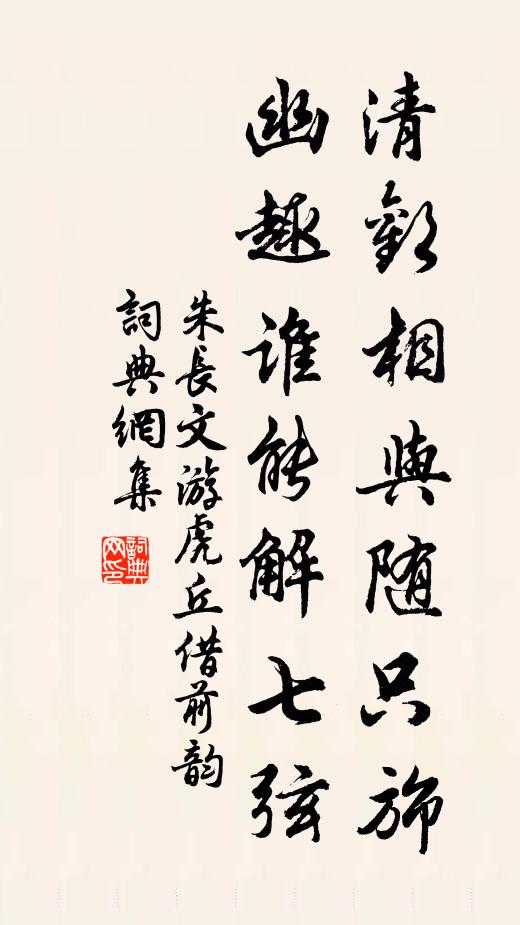 清歡相與随只旆
幽趣谁能解七弦
朱長文游虎丘借前韵
詞典網集
詞典網印